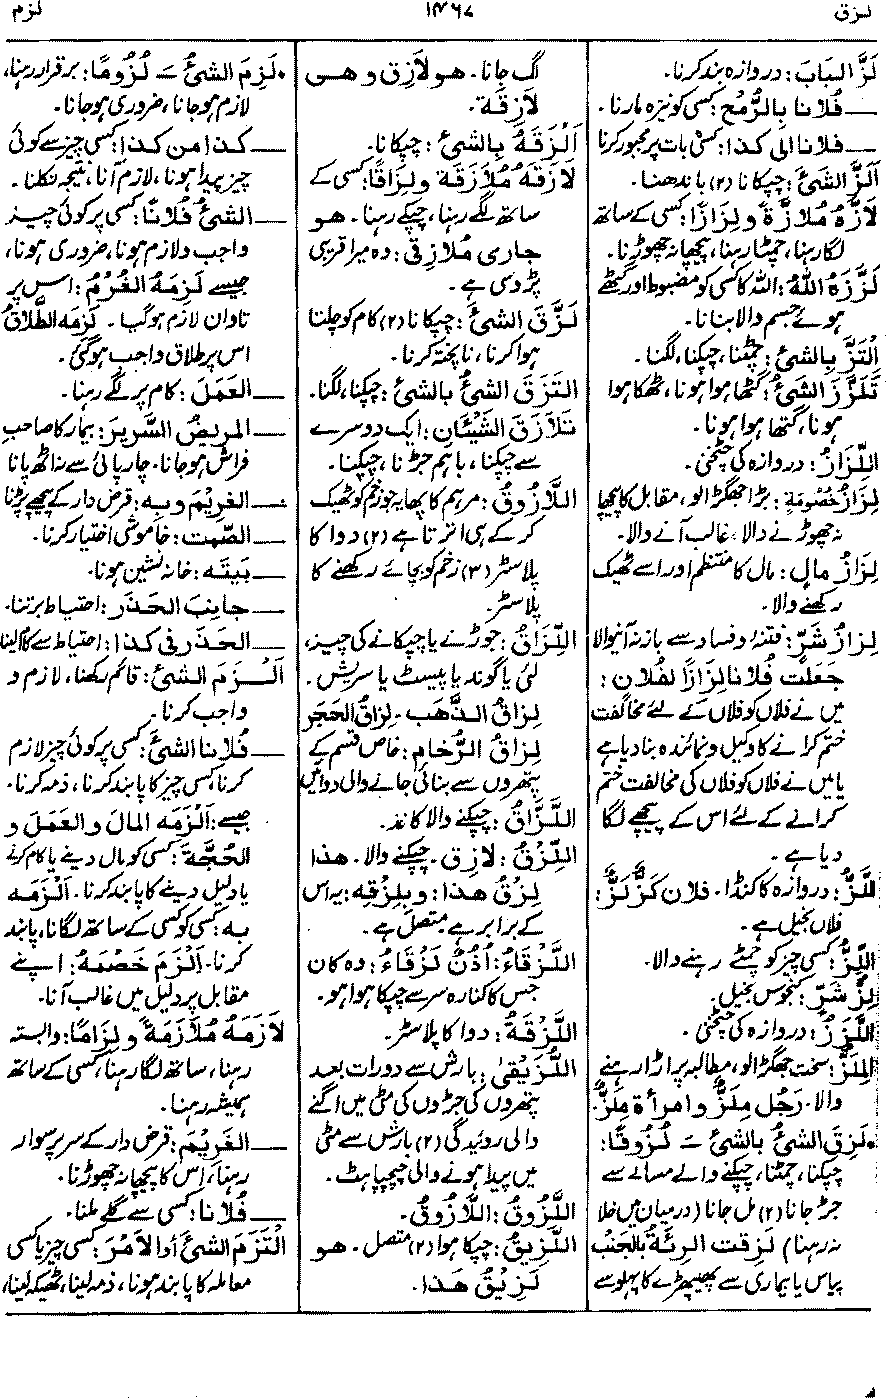 لزق
۱۴۶۷
لزم
لَزَّ البَابَ: دروازہ بند کرنا۔
— فُلَانا بِالرُّمْحِ: کسی کو نیزہ مارنا۔
— فلانا الى كذا: کسی بات پر مجبور کرنا
اَلَزَّ الشَّیْءَ: چپکانا (۲) باندھنا۔
لَازَّہُ مُلَازَّةً و لِزَازًا: کسی کے ساتھ
لگا رہنا، چمٹا رہنا، پیچھا نہ چھوڑنا۔
لَزَّزَهُ اللّٰهُ: اللہ کا کسی کو مضبوط اور گٹھے
ہوئے جسم والا بنانا۔
اَلْتَزَّ بِالشَّیْءِ: چمٹنا، چپکنا، لگنا۔
تَلَزَّزَ الشَّیْءُ: گٹھا ہوا ہونا، ٹھکا ہوا
ہونا، گتھا ہوا ہونا۔
اللِّزَازُ: دروازہ کی چٹخنی۔
لِزَازُ خُصُومَةٍ: بڑا جھگڑالو، مقابل کا پیچھا
نہ چھوڑنے والا، غالب آنے والا۔
لِزَازُ مالٍ: مال کا منتظم اور اسے ٹھیک
رکھنے والا۔
لِزَازُ شَرٍّ: فتنہ و فساد سے باز نہ آنیوالا
جَعَلْتُ فُلَانا لِزَازًا لفُلان:
میں نے فلاں کو فلاں کے لئے مخالفت
ختم کرانے کا وکیل و نمائندہ بنا دیا ہے
یا میں نے فلاں کو فلاں کی مخالفت ختم
کرانے کے لئے اس کے پیچھے لگا
دیا ہے۔
اللَّزُّ: دروازہ کا کنڈا۔ فلان كَزٌّ لَزٌّ:
فلاں بخیل ہے۔
اللِّزُّ: کسی چیز کو چمٹے رہنے والا۔
لِزُّ شَرٍّ: کنجوس بخیل۔
اللَّزَزُ: دروازہ کی چٹخنی۔
المِلَزُّ: سخت جھگڑالو، مطالبہ پر اڑا رہنے
والا۔ رَجُل مِلَزٌّ و امرأة مِلَزٌّ۔
• لَزِقَ الشَّیْءُ بالشیء ـَ لُزُوقًا:
چپکنا، چمٹنا، چپکنے والے مسالے سے
جڑ جانا (۲) مل جانا (درمیان میں خلا
نہ رہنا) لَزِقَت الرِّئَةُ بِالجَنْبِ
پیاس یا بیماری سے پھیپھڑے کا پہلو سے
لگ جانا۔ هو لَازِق و هى
لَازِقَة۔
اَلْزَقَهُ بِالشَّیْءِ: چپکانا۔
لَازَقَهُ مُلَازَقَةً و لِزَاقًا: کسی کے
ساتھ لگے رہنا، چپکے رہنا۔ هو
جاری مُلَازِقِی: وہ میرا قریبی
پڑوسی ہے۔
لَزَّقَ الشَّیْءَ: چپکانا (۲) کام کو چلتا
ہوا کرنا، ناپختہ کرنا۔
اِلْتَزَقَ الشَّیْءُ بالشیء: چپکنا، لگنا۔
تَلَازَقَ الشَّیْئَانِ: ایک دوسرے
سے چپکنا، باہم جڑنا، چپکنا۔
اللَّازُوقُ: مرہم کا پھایہ جو زخم کو ٹھیک
کر کے ہی اترتا ہے (۲) دوا کا
پلاسٹر (۳) زخم کو بچائے رکھنے کا
پلاسٹر۔
اللِّزَاقُ: جوڑنے یا چپکانے کی چیز،
لئی یا گوند یا پیسٹ یا سریش۔
لِزَاقُ الذَّهَبِ ـ لِزَاقُ الحَجَر
لِزَاقُ الرُّخَامِ: خاص قسم کے
پتھروں سے بنائی جانے والی دوائیں
اللَّزَّاقُ: چپکنے والا کاغذ۔
اللِّزْقُ: لازق۔ چپکنے والا۔ هذا
لِزْقُ هذا: و بِلِزْقِهِ: یہ اس
کے برابر ہے، متصل ہے۔
اللَّزْقَاءُ: أُذُنٌ لَزْقَاءُ: وہ کان
جس کا کنارہ سر سے چپکا ہوا ہو۔
اللَّزْقَةُ: دوا کا پلاسٹر۔
اللُّزَّيْقَى: بارش سے دو رات بعد
پتھروں کی جڑوں کی مٹی میں اگنے
والی روئیدگی (۲) بارش سے مٹی
میں پیدا ہونے والی چپچپاہٹ۔
اللَّزُوقُ: اللَّازُوقُ۔
اللَّزِيْقُ: چپکا ہوا (۲) متصل۔ هو
لَزِيْقُ هٰذا۔
• لَزِمَ الشَّیْءُ ـَ لُزُومًا: برقرار رہنا،
لازم ہو جانا، ضروری ہو جانا۔
— كذا من كذا: کسی چیز سے کوئی
چیز پیدا ہونا، لازم آنا، نتیجہ نکلنا۔
— الشَّیْءُ فُلَانًا: کسی پر کوئی چیز
واجب و لازم ہونا، ضروری ہونا،
جیسے لَزِمَهُ الغُرْمُ: اس پر
تاوان لازم ہو گیا۔ لَزِمَه الطَّلَاقُ
اس پر طلاق واجب ہو گئی۔
— العَمَلَ: کام پر لگے رہنا۔
— المریضُ السَّرِیرَ: بیمار کا صاحبِ
فراش ہو جانا۔ چارپائی سے نہ اٹھ پانا
— الغَرِیْمَ و بِهِ: قرض دار کے پیچھے پڑنا
— الصَّمْتَ: خاموشی اختیار کرنا۔
— بَیتَه: خانہ نشین ہونا۔
— جانِبَ الحَذَرِ: احتیاط برتنا۔
— الحَذَرَ فی كذا: احتیاط سے کام لینا
اَلْزَمَ الشَّیْءَ: قائم رکھنا، لازم و
واجب کرنا۔
— فُلَانا الشَّیْءَ: کسی پر کوئی چیز لازم
کرنا، کسی چیز کا پابند کرنا، ذمہ کرنا۔
جیسے: اَلْزَمَه المالَ و العَمَلَ و
الحُجَّةَ: کسی کو مال دینے یا کام کرنے
یا دلیل دینے کا پابند کرنا۔ اَلْزَمَه
بِه: کسی کو کسی کے ساتھ لگانا، پابند
کرنا۔ اَلْزَمَ خَصْمَهُ: اپنے
مقابل پر دلیل میں غالب آنا۔
لَازَمَهُ مُلَازَمَةً و لِزَامًا: وابستہ
رہنا، ساتھ لگا رہنا، کسی کے ساتھ
ہمیشہ رہنا۔
— الغَرِیْمَ: قرض دار کے سر پر سوار
رہنا، اس کا پیچھا نہ چھوڑنا۔
— فُلَانا: کسی سے گلے ملنا۔
اِلْتَزَمَ الشَّیْءَ أو الأَمْرَ: کسی چیز یا کسی
معاملہ کا پابند ہونا، ذمہ لینا، ٹھیکہ لینا،